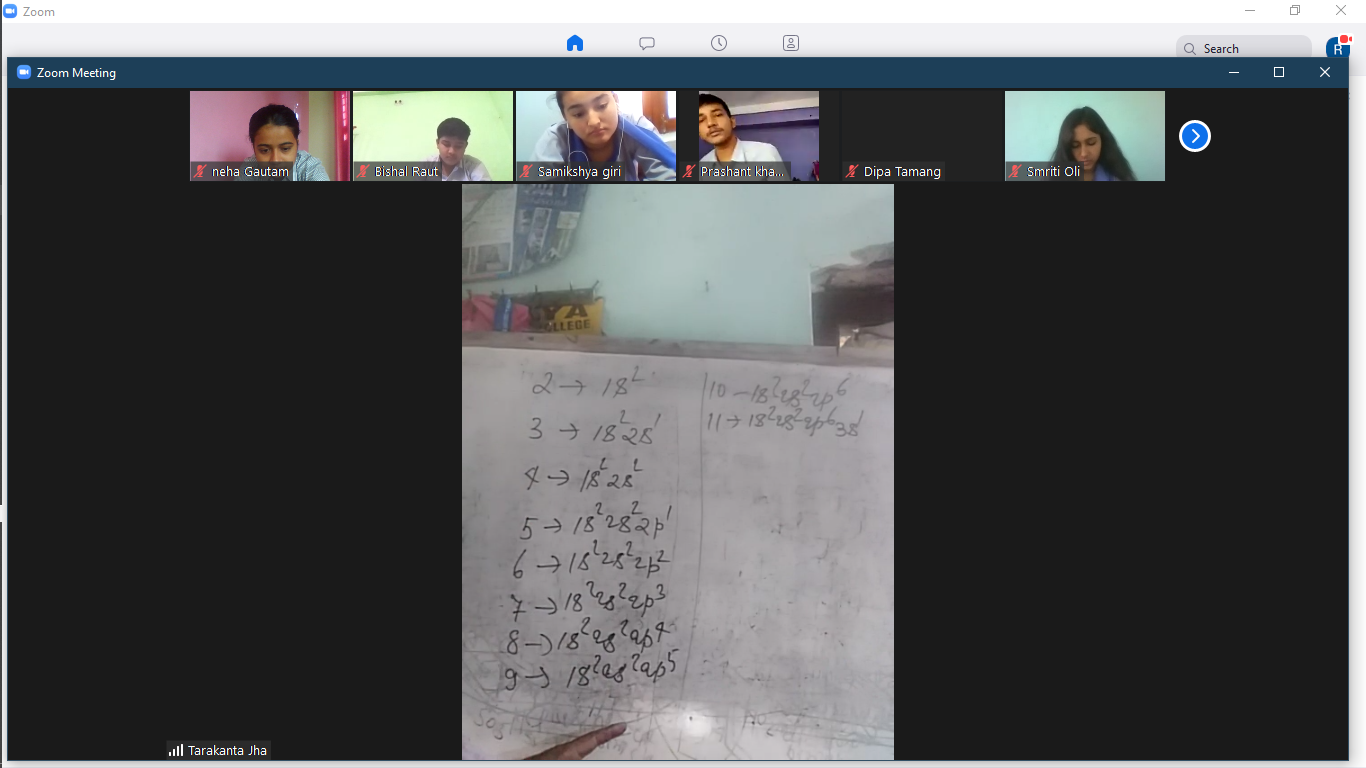 Zoom
Search
R
Zoom Meeting
neha Gautam
Bishal Raut
Samikshya giri
Prashant kha...
Dipa Tamang
Smriti Oli
YA
COLLEGE
2 → 1s²
3 → 1s²2s¹
4 → 1s²2s²
5 → 1s²2s²2p¹
6 → 1s²2s²2p²
7 → 1s²2s²2p³
8 → 1s²2s²2p⁴
9 → 1s²2s²2p⁵
10 → 1s²2s²2p⁶
11 → 1s²2s²2p⁶3s¹
Tarakanta Jha